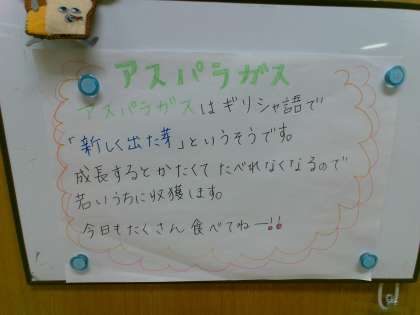 アスパラガス
アスパラガスはギリシャ語で
「新しく出た芽」というそうです。
成長するとかたくて たべれなくなるので
若いうちに収獲します。
今日もたくさん食べてねー!!